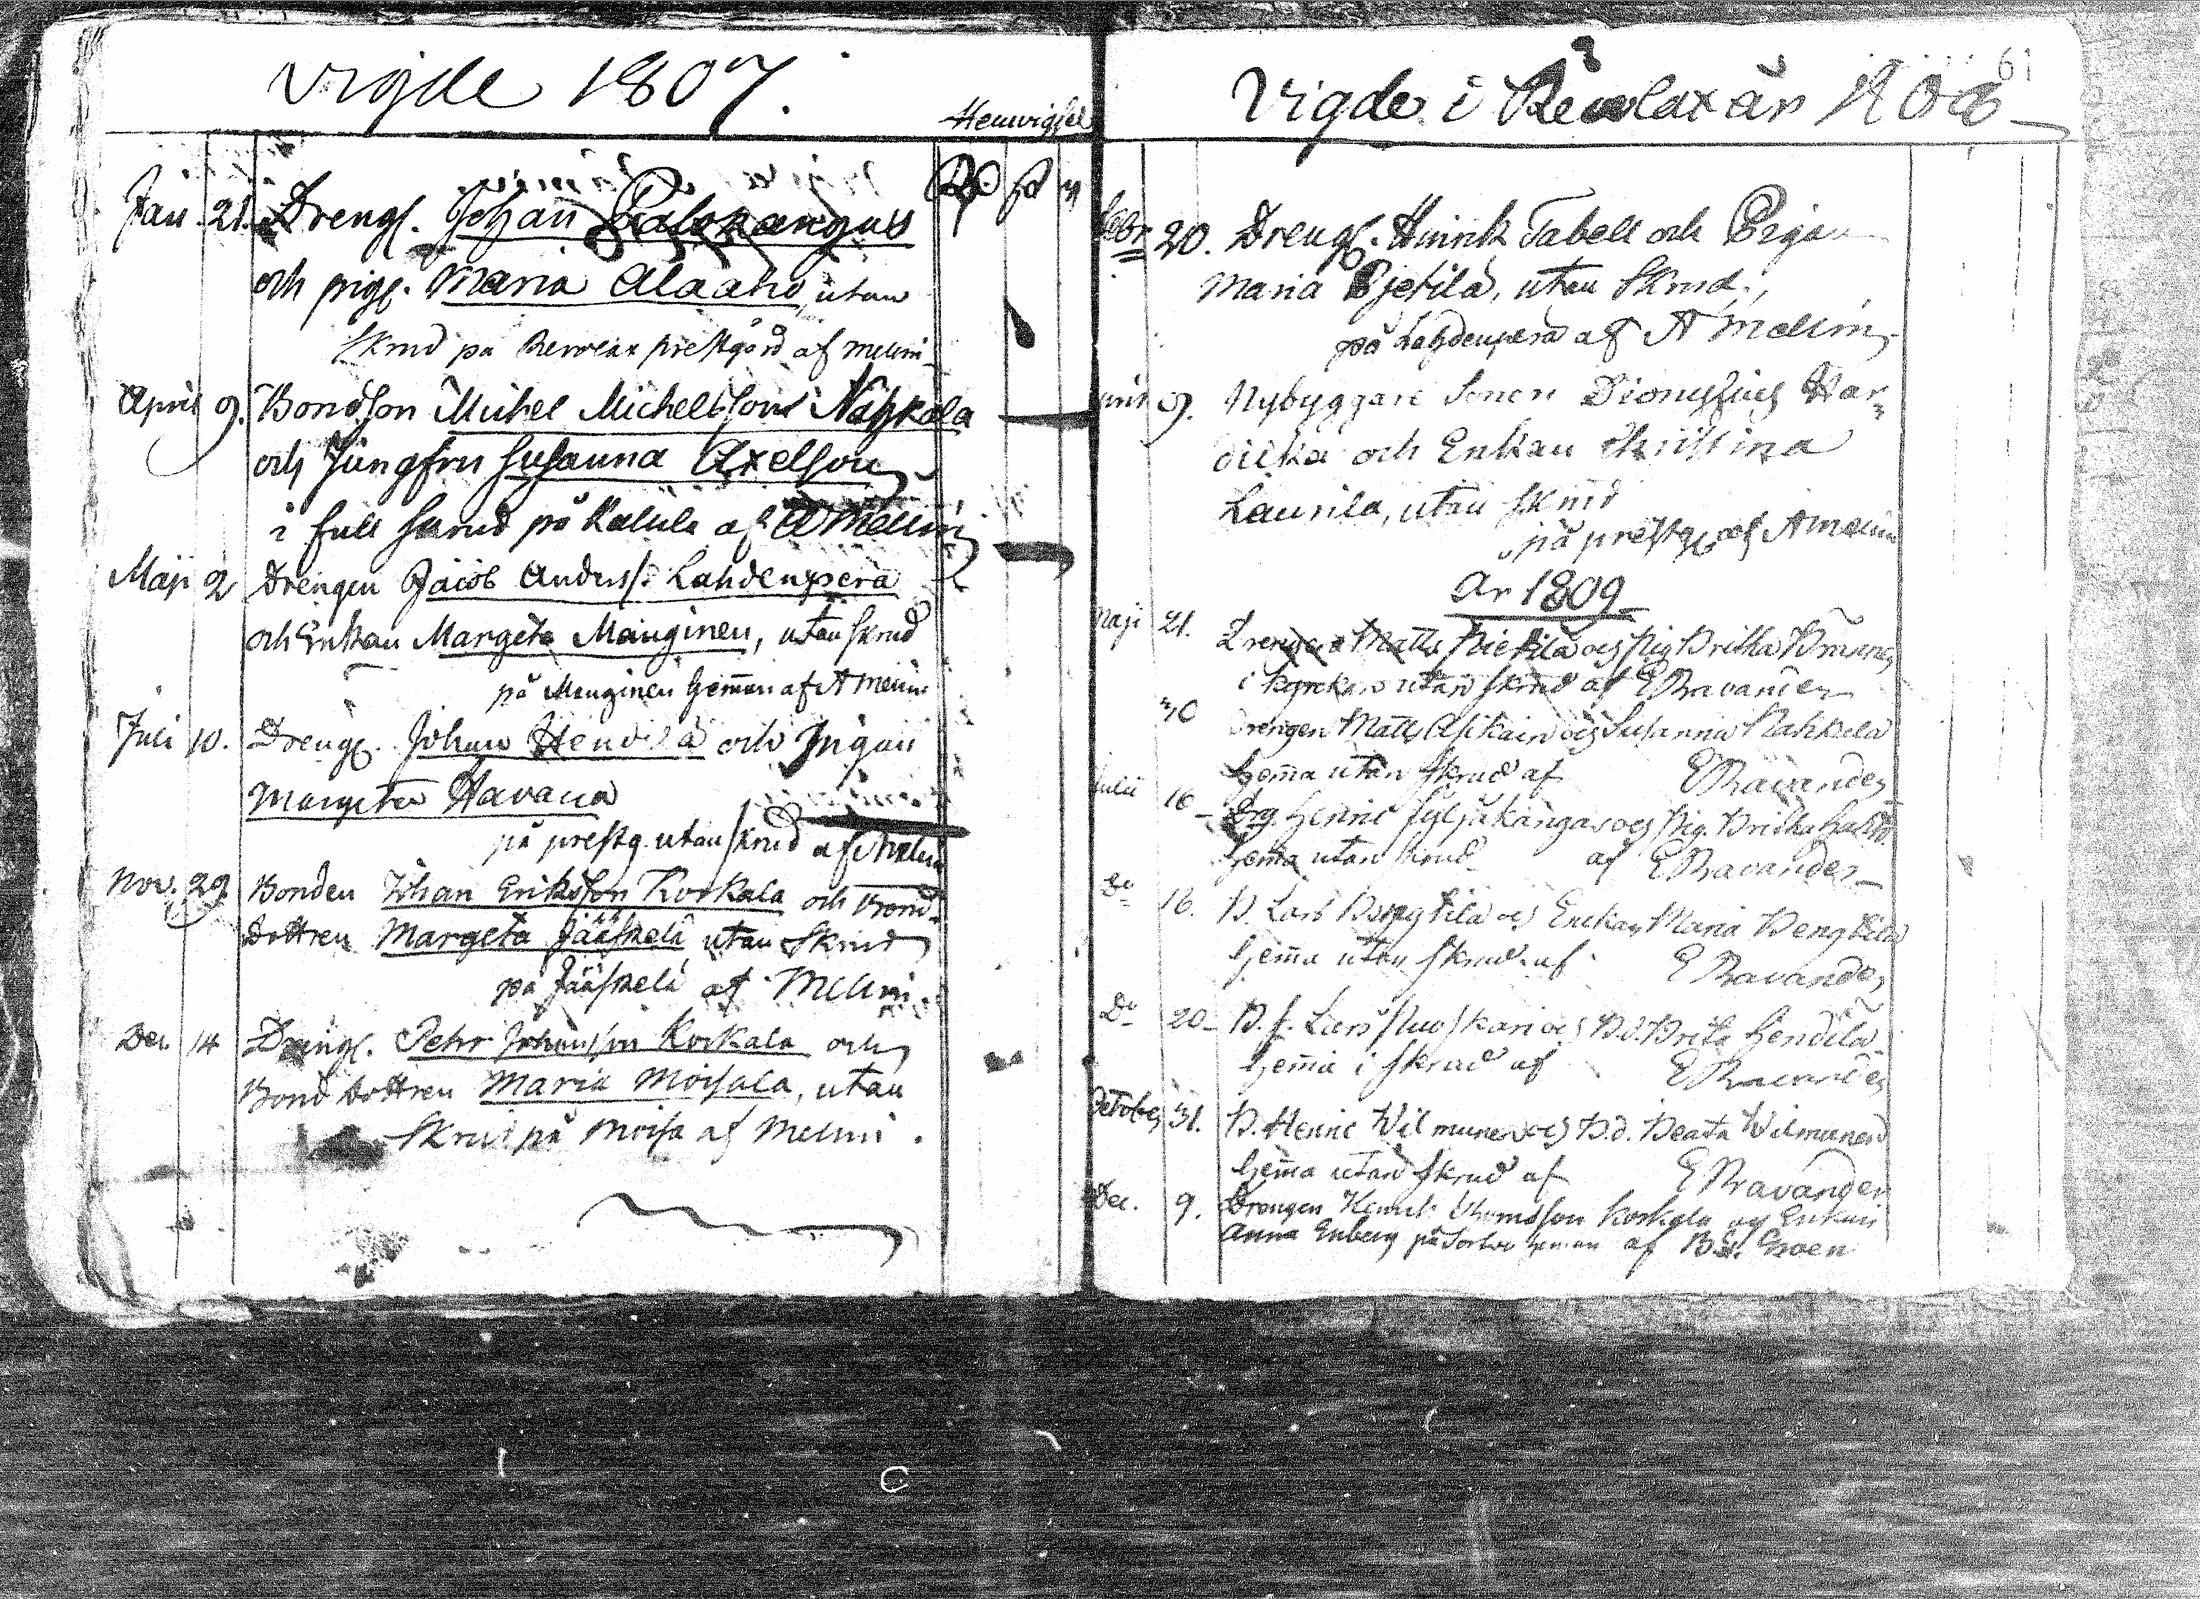 Vigde 1807.
Hemvigsel
Jan. 21. Drengs. Johan Palokangas
och pig. Maria Alaaho, utan
Skrud på Rewolax prestgård af Mellin
April 9. Bondson Michel Michelsson Nahkala
och Jungfru Susanna Axelson
i full skrud på Kalula af A Mellin
Maji 2 Drengen Jacob Anderss: Lahdenpera
och Enkan Margeta Manginen, utan skrud
på Manginen hemman af A Mellin
Juli 10. Dreng. Johan Hendila och Pigan
Margeta Havana
på prestg. utan skrud af A Mellin
Nov. 29 Bonden Johan Eriksson Korkala och Bond-
dottren Margeta Jääskelä utan Skrud
på Jääskelä af Mellin
Dec. 14 Drengs. Pehr Johansson Korkala och
Bonddottren Maria Moisala, utan
Skrud på Moisa af Mellin.
61
Vigde i Rewolax år 1808
Febr. 20. Drengs. Hinrik Tabell och Pigan
Maria Pjetilä, utan Skrud,
på Lahdenpera af A Mellin
9. Nybyggare Sonen Dionysius Har-
dicka och Enkan Christina
Laurila, utan Skrud
på prestg. af A Mellin
År 1809
Maji 21. Drengen Matts Pietilä och Pig Britha
i kyrkan utan skrud af E Ravander
30 Drengen Matts Asikain och Susanna Nahkela
hema utan skrud af E Ravander
Julii 16 Drg. Henric Syljäkangas och Pig. Britha
hema utan skrud af E Ravander
Do 16. B. Lars Bengtila och Enckan Maria Bengtila
hema utan skrud af E Ravander
Do 20 B.s. Lars och B.d. Brita Hendila
hema i skrud af E Ravander
October 31. B. Henric Wilmunen och B.d. Beata Wilmunen
hema utan skrud af E Ravander
Dec. 9. Drengen Henrik Thomasson Korkala och Enkan
Anna Enberg på hemman af